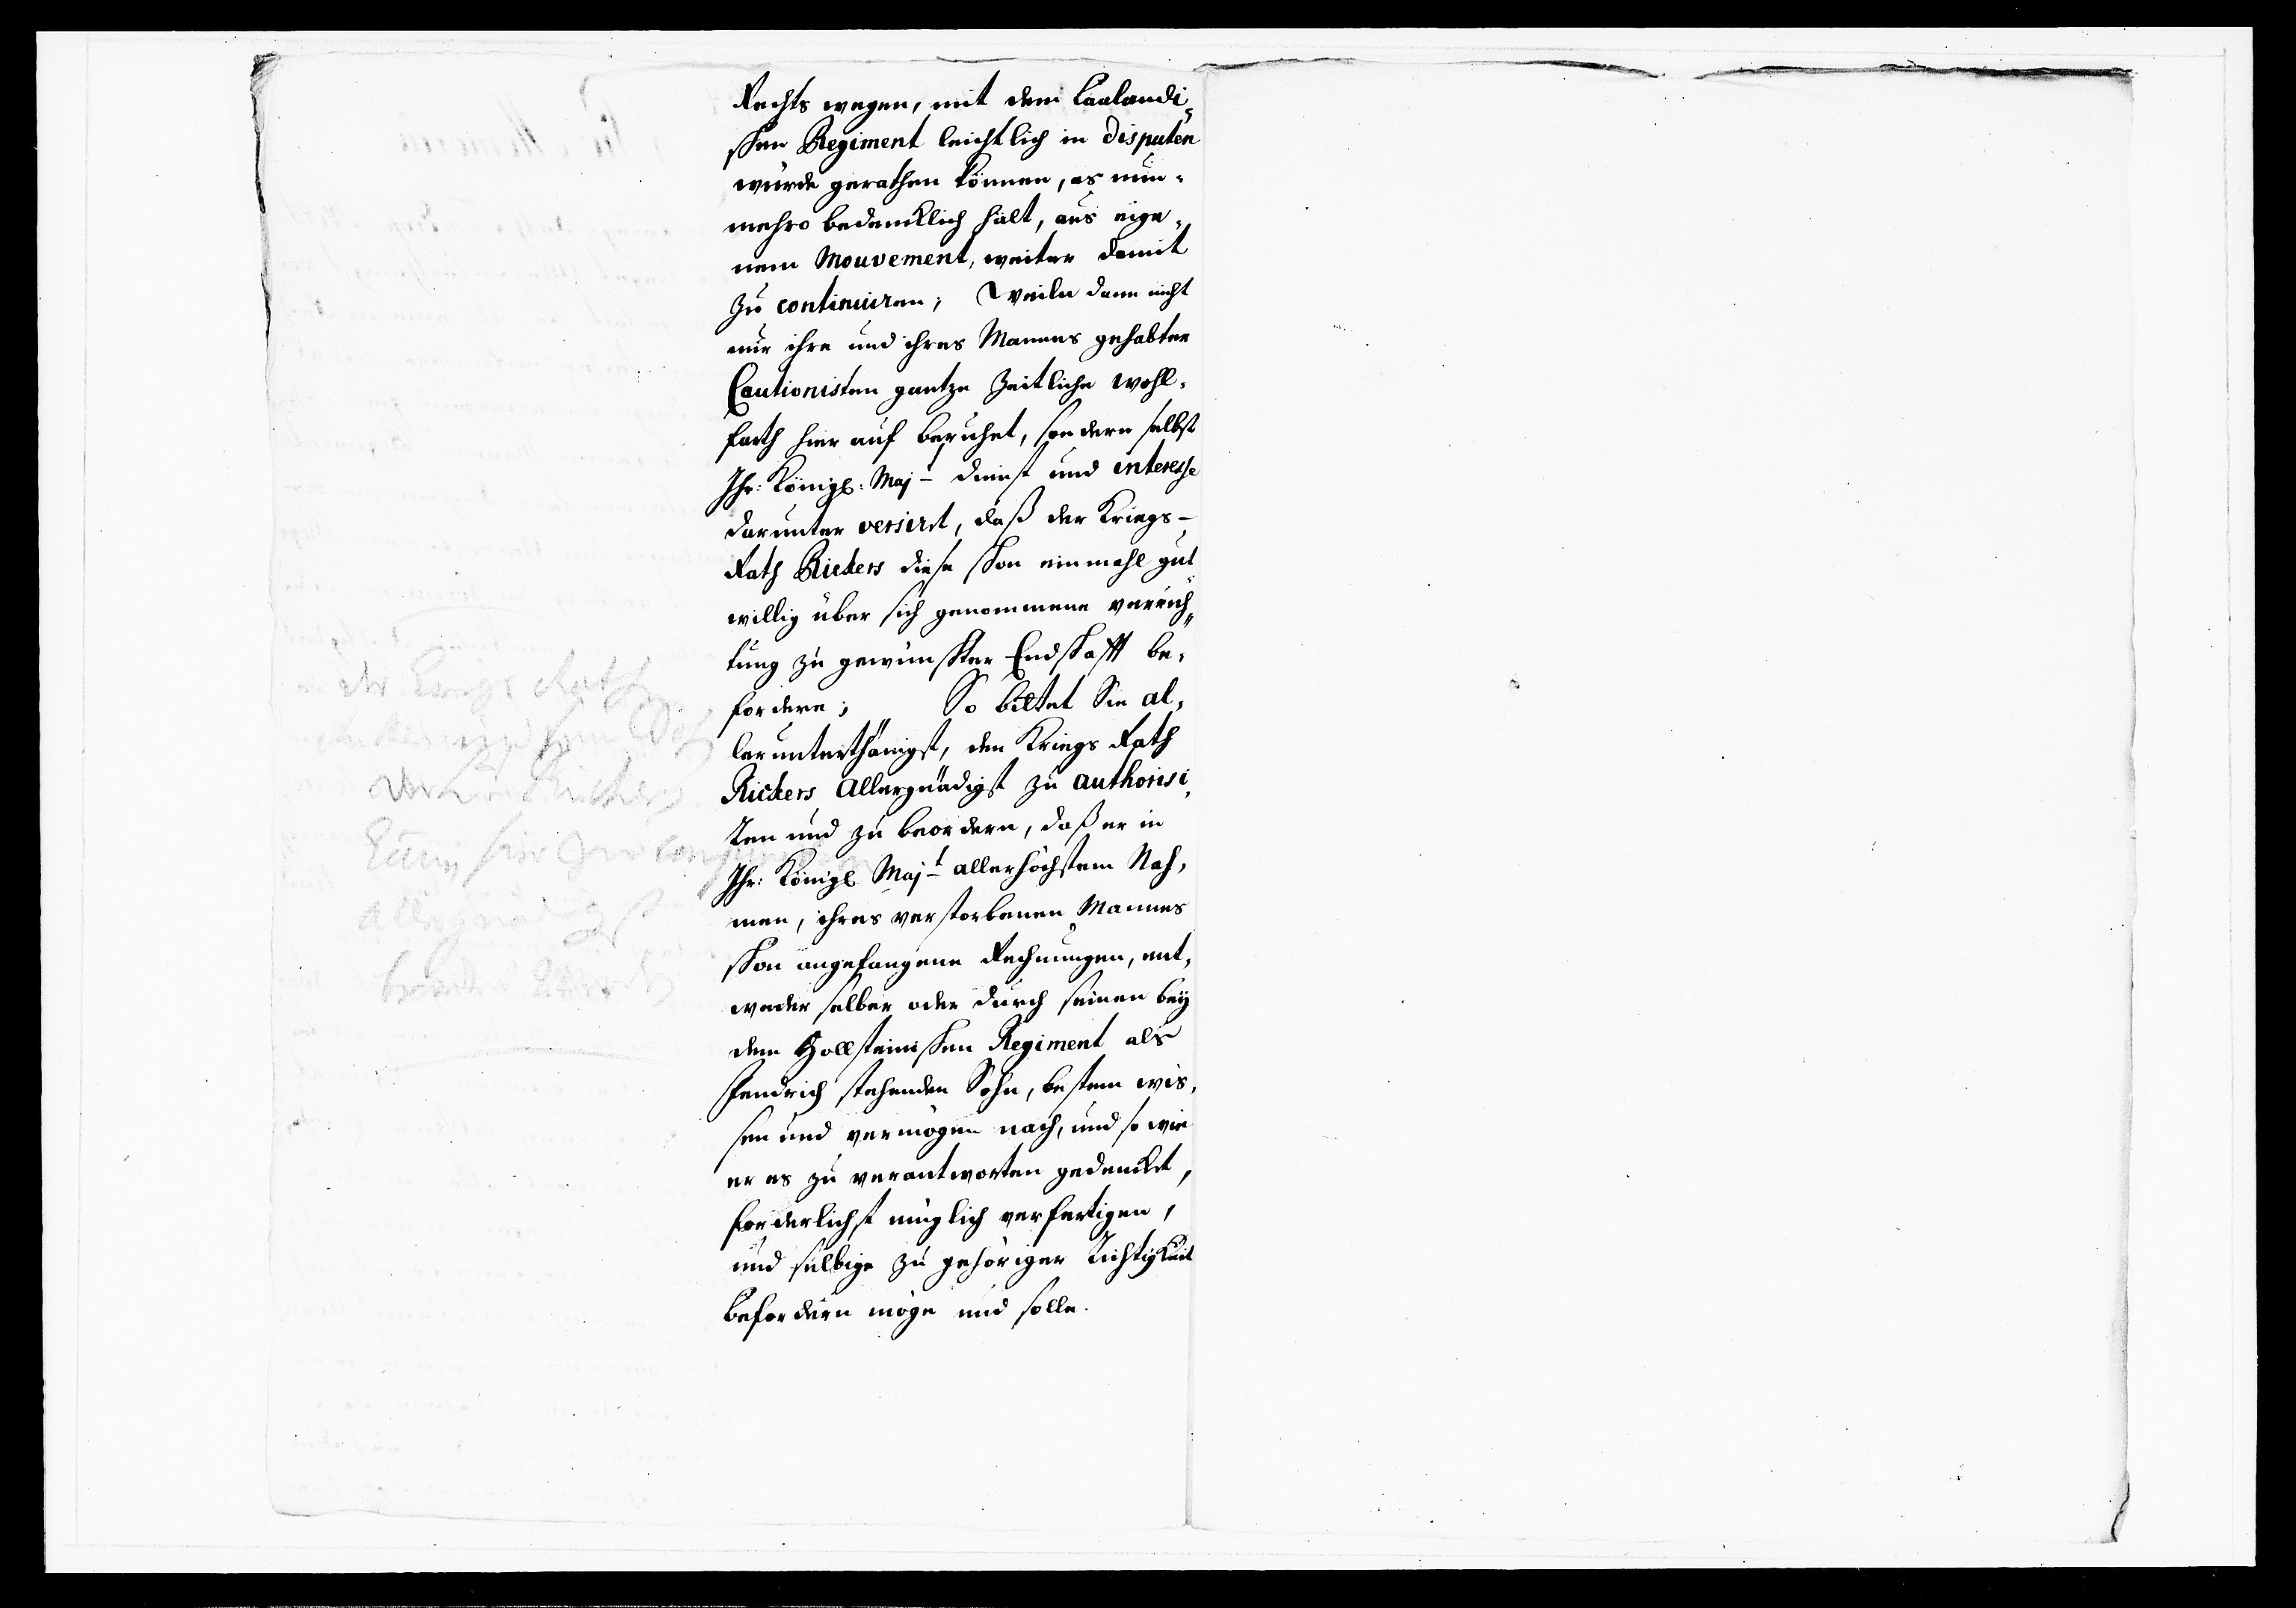 Rechts wegen, mit dem Laalandi-
schen Regiment leichtlich in disputen
würde gerathen können, es nun-
mehro bedencklich hält, aus eige-
nem Mouvement, weiter damit
zu continuiren; weiln dann nicht
nur ihre und ihres Mannes gehabten
Cautionisten gantze zeitliche wohl-
farth hier auf beruhet, sondern selbst
Ihr: Königl: Majt dienst und interesse
darunter versirt, daß der Kriegs-
Rath Rickers diese schon einmahl gut
willig über sich genommene verrich-
tung zu gewünschter Endschafft be-
fordere; So bittet Sie al-
lerunterthänigst, den Kriegs Rath
Rickers Allergnädigst zu authorisi-
ren und zu beordern, daß er in
Ihr: Königl Majt allerhöchstem Nah-
men, ihres verstorbenen Mannes
schon angefangene Rechnungen, ent-
weder selber oder durch seinen bey
dem Hollsteinischen Regiment als
Fendrich stehenden Sohn, bestem wis-
sen und vermögen nach, und so wie
er es zu verantworten gedencket,
forderlichst müglich verfertigen,
und selbige zu gehöriger Richtigkeit
befordern möge und solle.
der Kriegs Rath
Rickers
allergnädigst